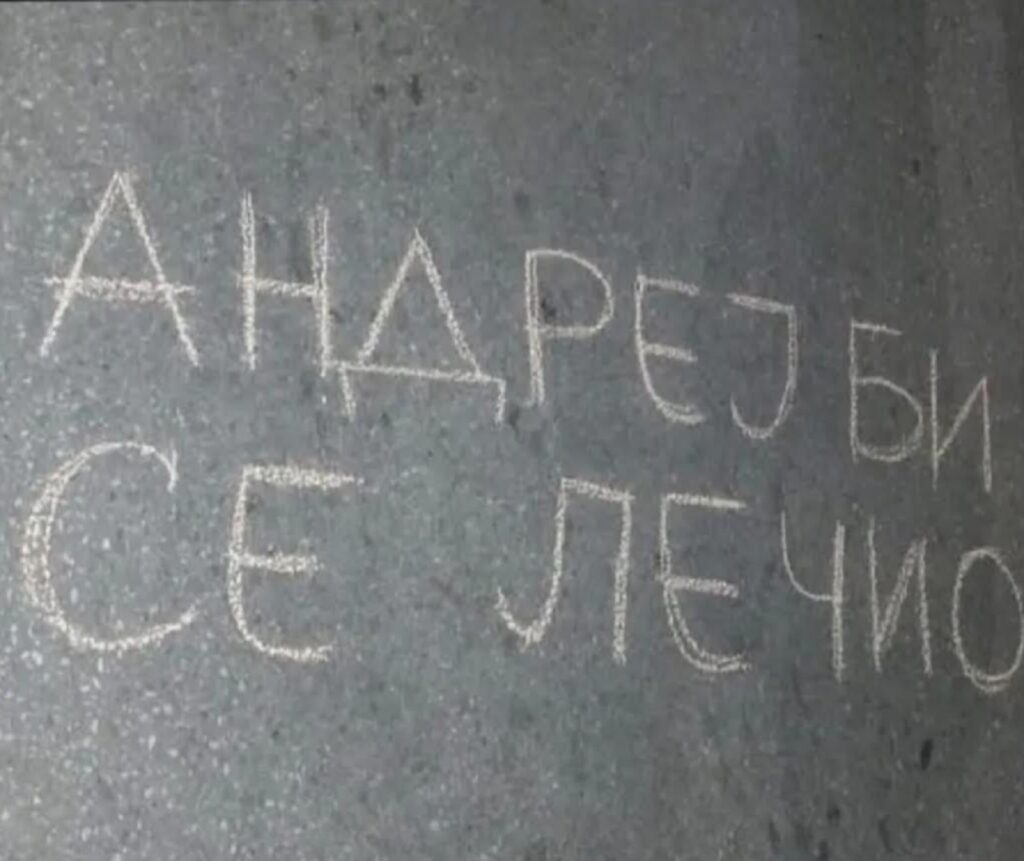 АНДРЕЈ БИ
СЕ ЛЕЧИО